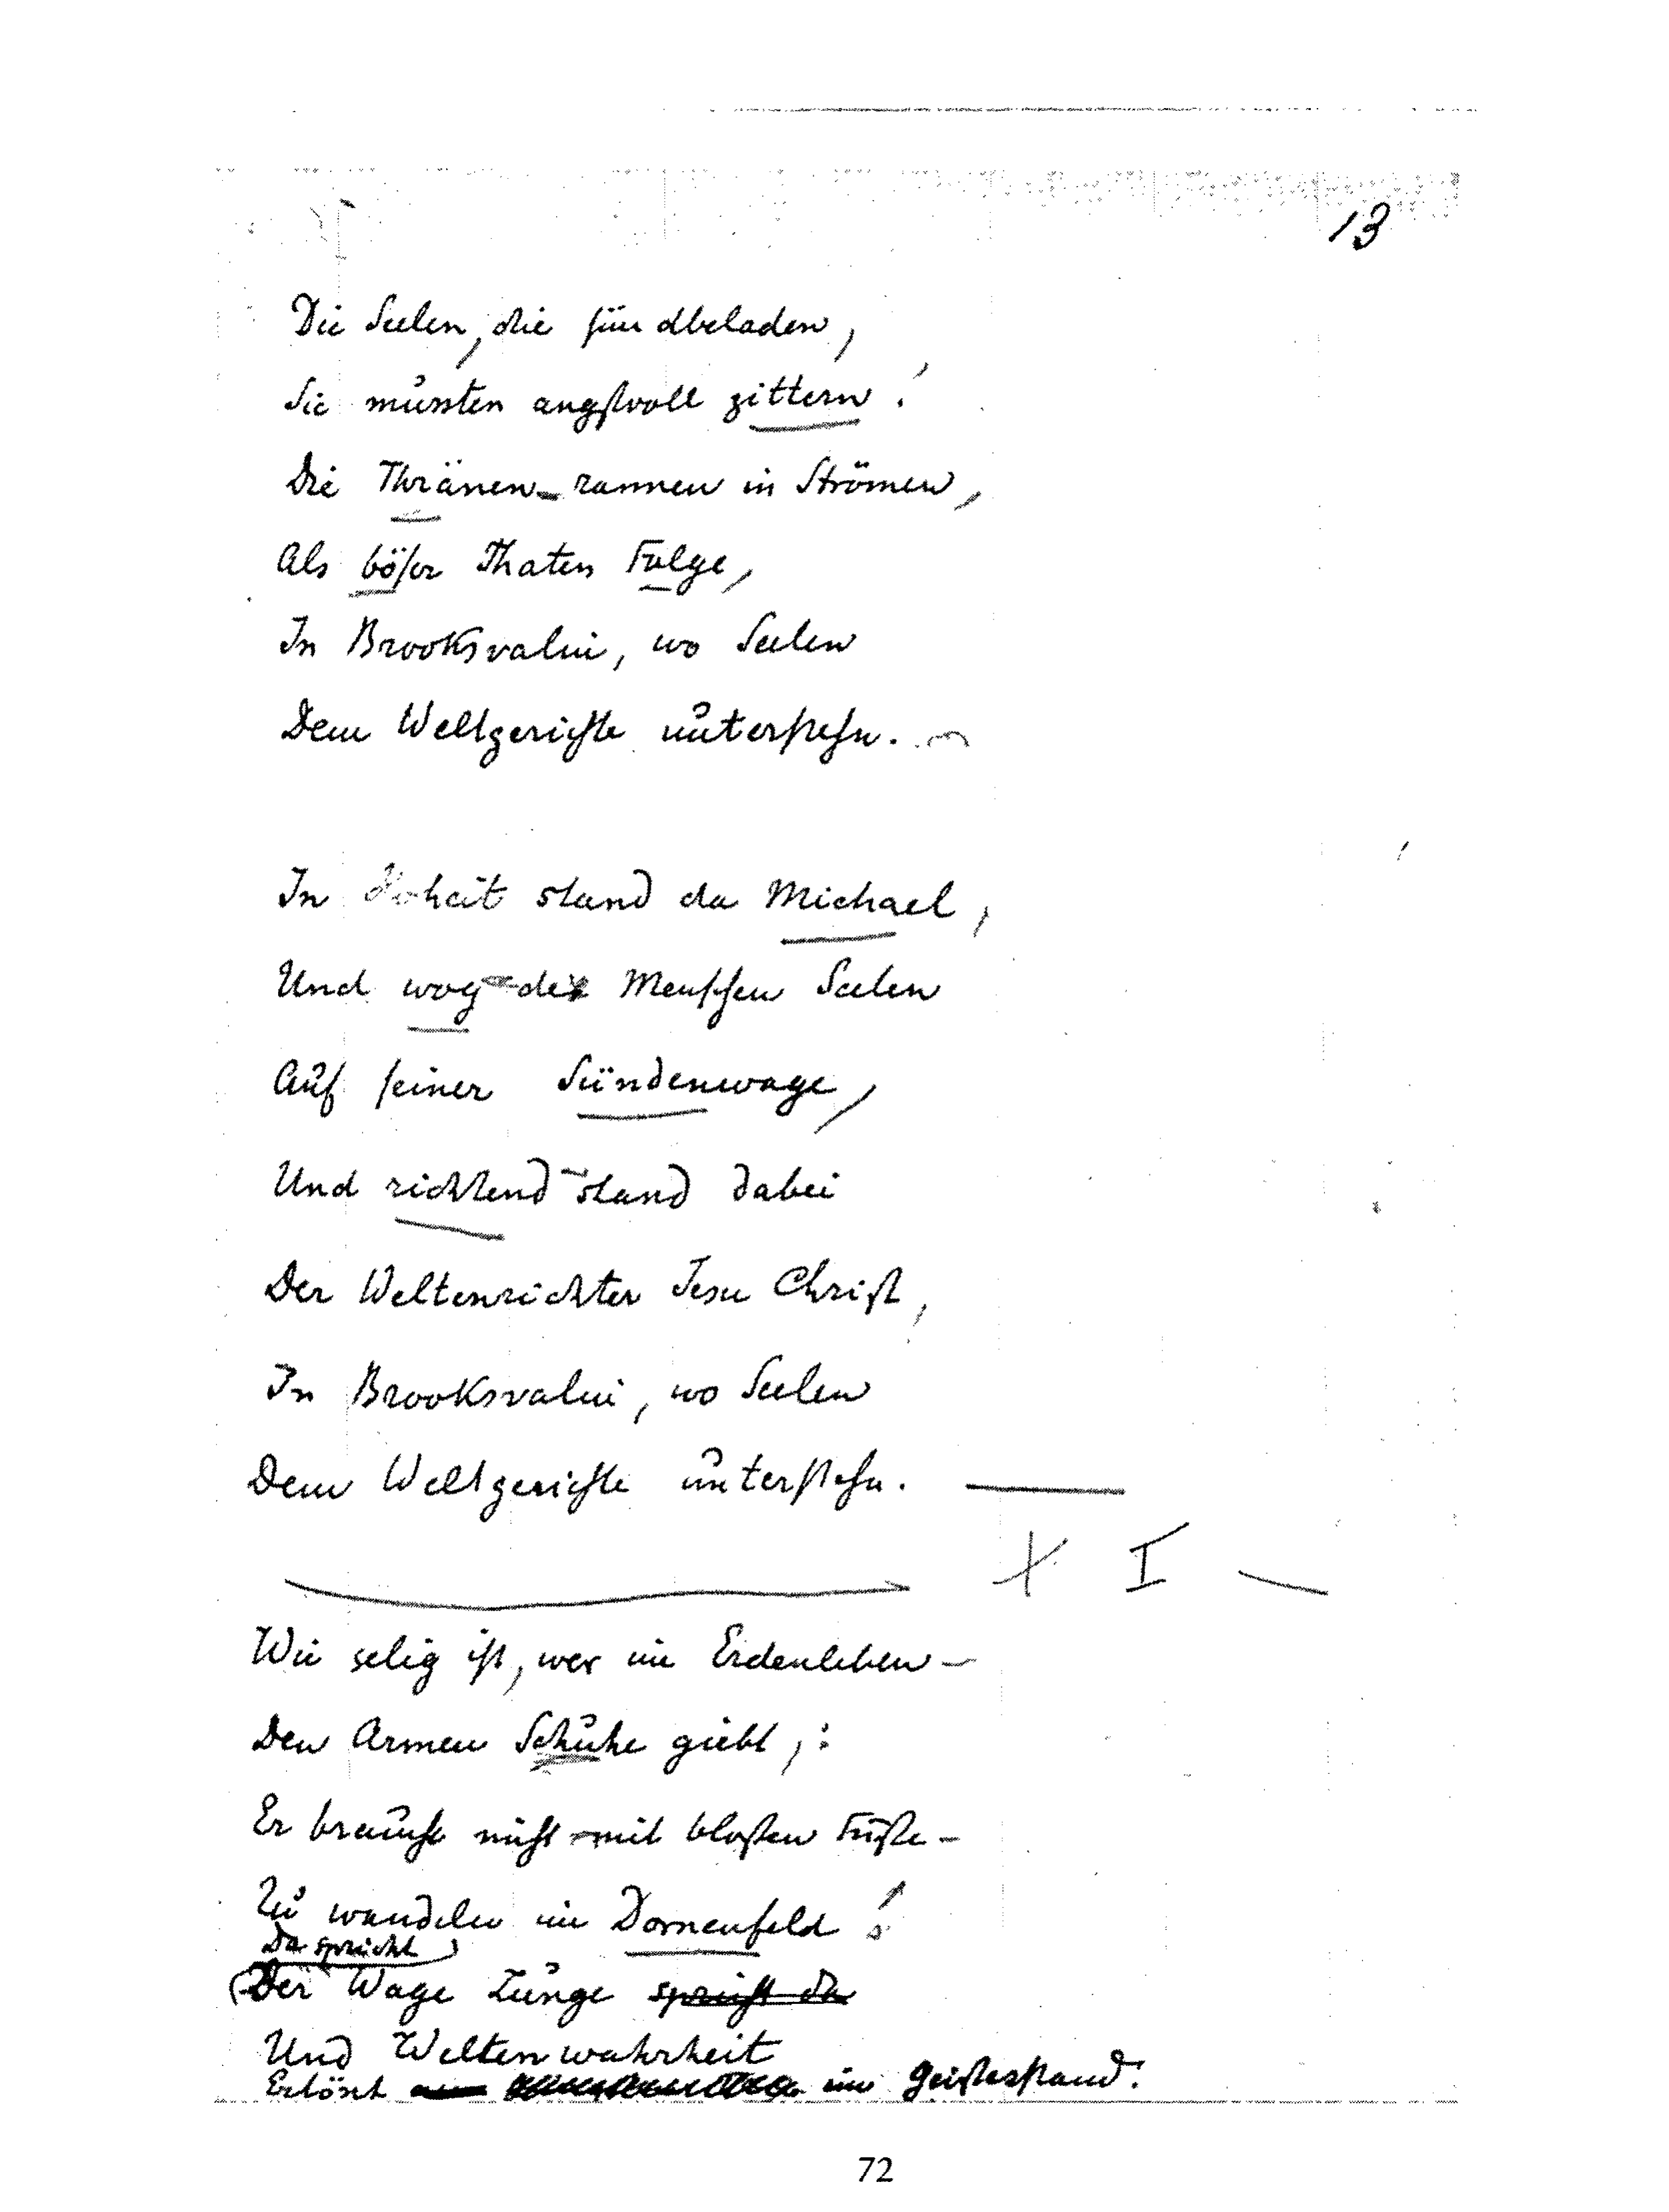 13
Die Seelen, die sündbeladen,
Sie mussten angstvoll zittern!
Die Thränen rannen in Strömen,
Als böser Thaten Folge,
In Brooksvalin, wo Seelen
Dem Weltgerichte unterstehn.
In Hoheit stand da Michael,
Und wog der Menschen Seelen
Auf seiner Sündenwage,
Und richtend stand dabei
Der Weltenrichter Jesu Christ,
In Brooksvalin, wo Seelen
Dem Weltgerichte unterstehn.
X I
Wie selig ist, wer im Erdenleben
Den Armen Schuhe giebt;
Er braucht nicht mit bloßen Füße
Zu wandeln im Dornenfeld!
Da spricht
Der Wage Zunge spricht da
Und Weltenwahrheit
Ertönt im Geistesstand!
72